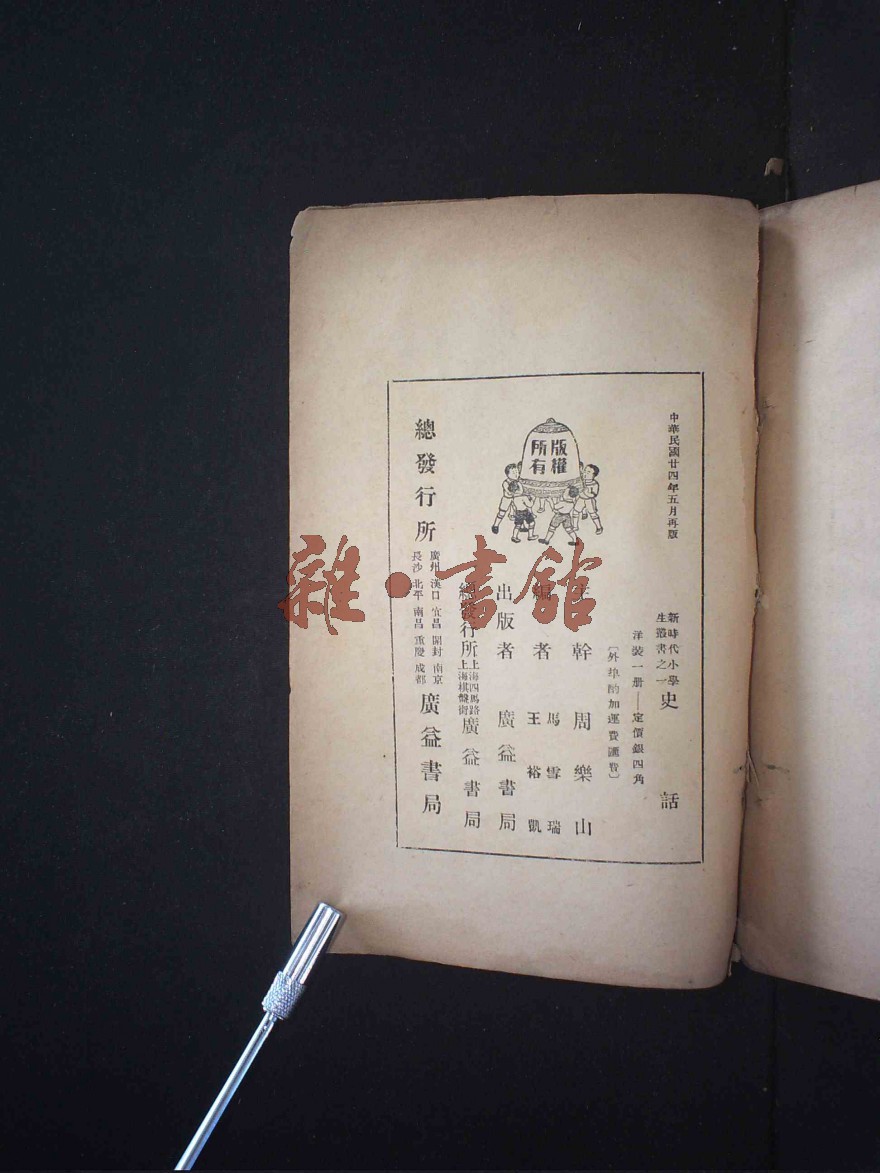 中華民國廿四年五月再版
新時代小學
生叢書之一
史話
洋裝一册——定價銀四角
〔外埠酌加運費匯費〕
版權
所有
主幹 周樂山
編者 馬雪瑞
王裕凱
出版者 廣益書局
總發行所 上海四馬路
上海棋盤街 廣益書局
總發行所
廣州 漢口 宜昌 開封 南京
長沙 北平 南昌 重慶 成都
廣益書局
雜·書館